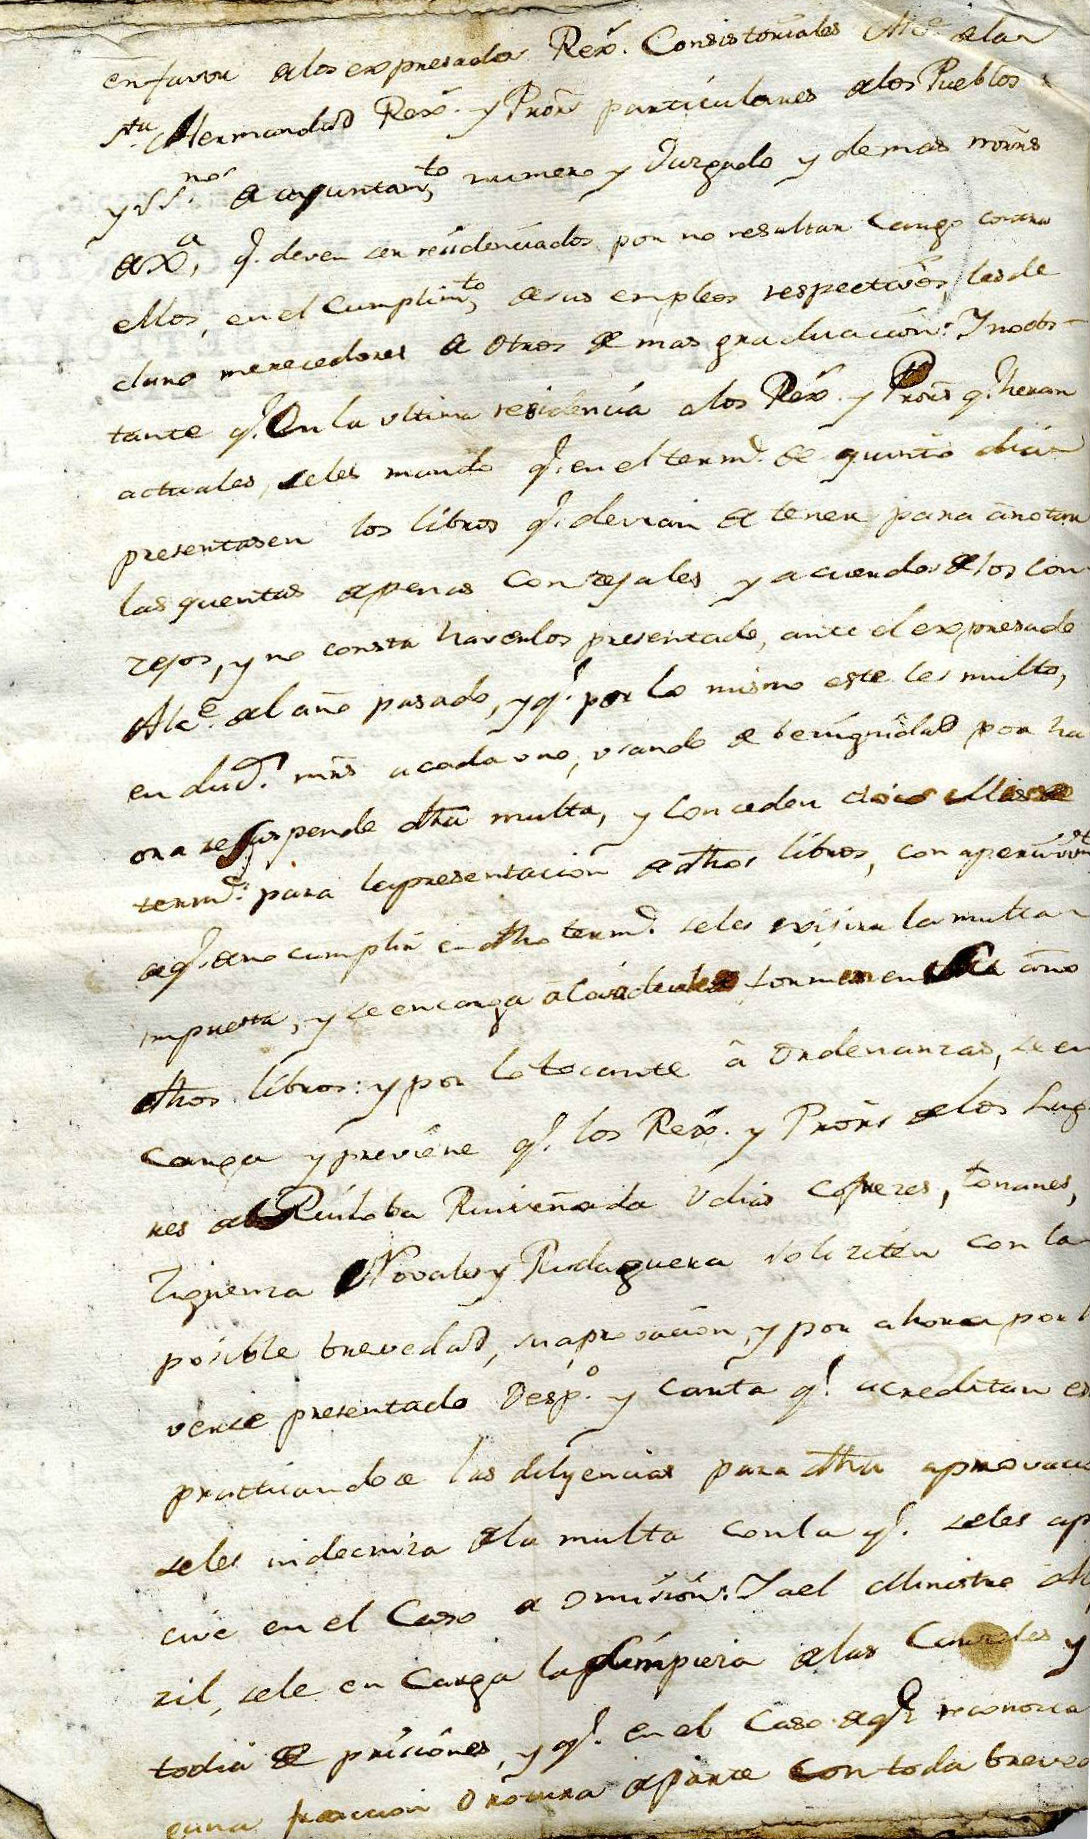 en favor de los expresados Rexs. Consistoriales Alce. de la
Sta. Hermandad Rexs. y Prors particulares de los Pueblos
y SSnos. de ayuntamto numero y Juzgado y demas mrñs
q. deven ser residenciados por no resultar Cargo contra
ellos, en el Cumplimto de sus empleos respectivos, les de
claro merecedores de otros de mas graduacion: Y no obs-
tante q. en la ultima residencia a los Rexs. y Prors q. heran
actuales, se les mando q. en el termo. de quinto dia
presentasen los libros q. devian de tener para anotar
las quentas de penas Conzejales y acuerdos de los Con
zejos, y no consta haverlos presentado, ante el expresado
Alce. del año pasado, y q. por lo mismo este les multo,
en mrs a cada uno, usando de benignidad por ha
ora se suspende dha multa, y conceden
termo. para la presentacion de dhos libros, con apercivimto
de q. de no cumplir en dho termo. se les exijira la multa
impuesta, y se encarga a formen en año
dhos libros: y por lo tocante â Ordenanzas, se en
carga y previene q. los Rexs. y Prors de los Luga
res de Ruiloba Ruiseñada Udias Cofreres, Tonanes,
Ziguenza Novales y Rudaguera soliziten con la
posible brevedad, su aprovacion, y por ahora por h
verse presentado Despo. y Carta q. acreditan es
practicandose las dilijencias para dha aprovacio
se les indecniza de la multa con la q. se les ap
cive en el Caso de omision: Y a el Ministro Al
zil, se le encarga la limpieza de las Carzeles y
todia de prisiones, y q. en el Caso de q. reconozca
guna de parte con toda breved